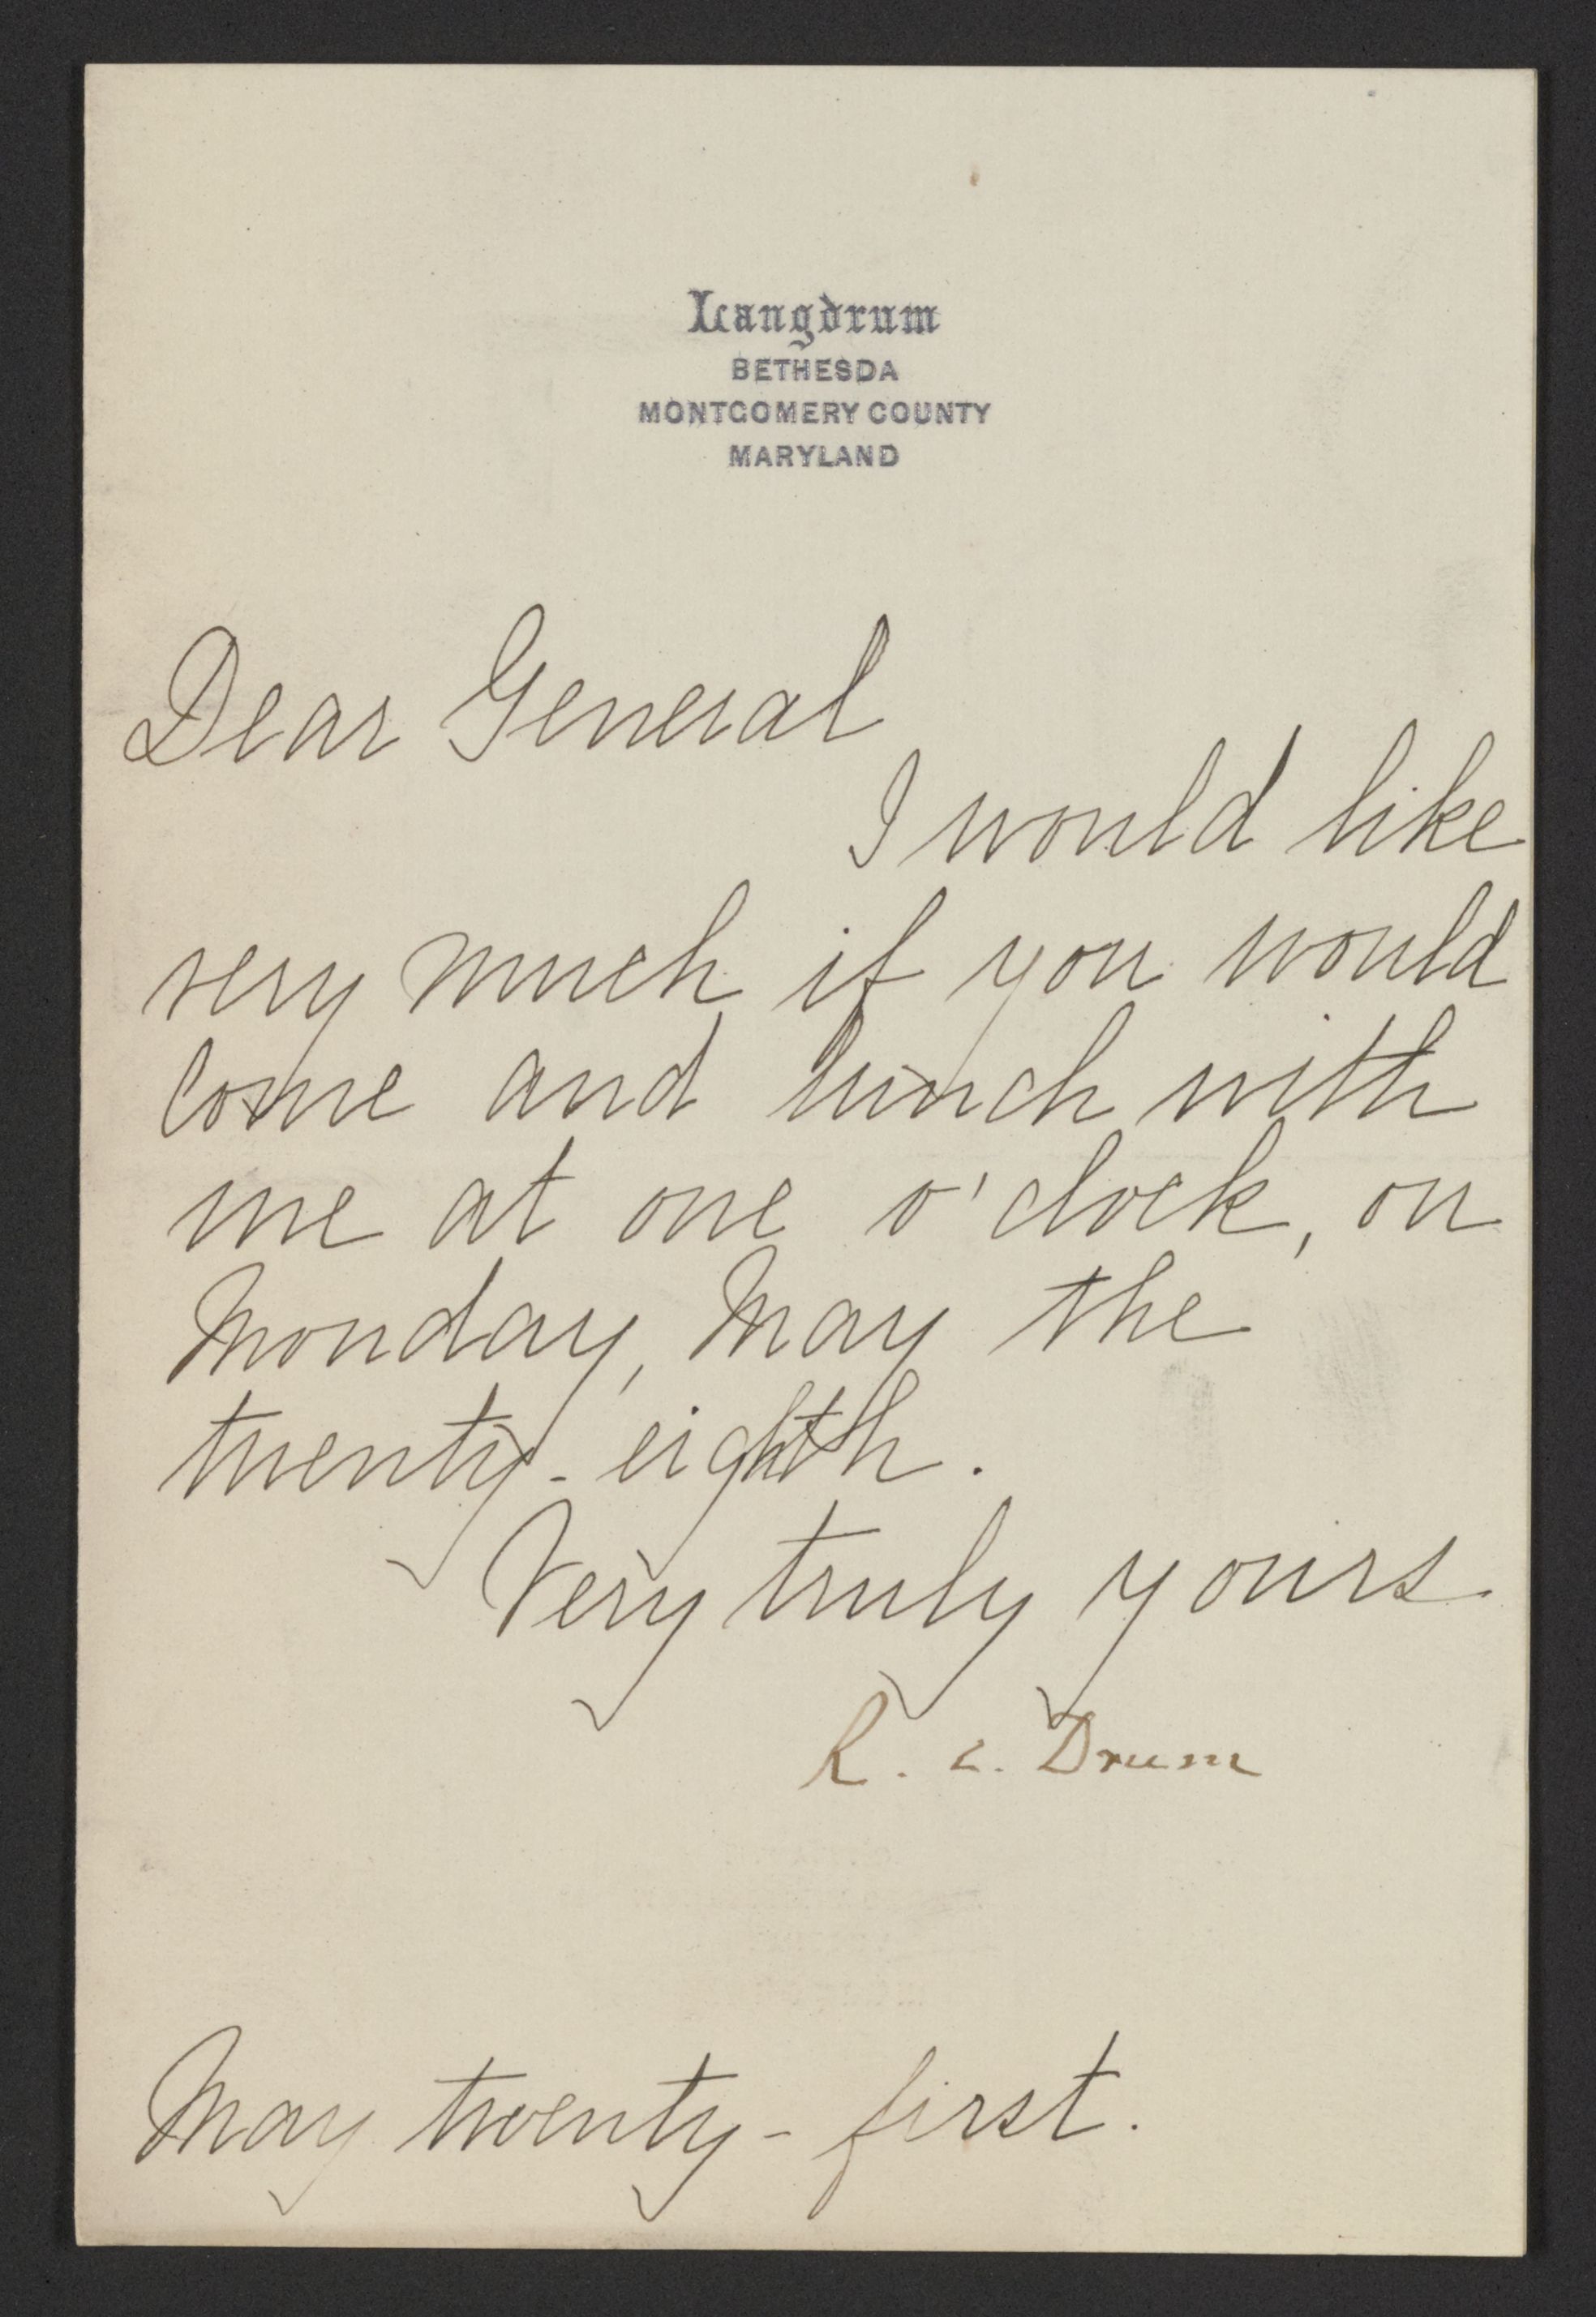 Langdrum
BETHESDA
MONTGOMERY COUNTY
MARYLAND
Dear General
I would like
very much if you would
come and lunch with
me at one o'clock, on
Monday, May the
twenty-eighth.
Very truly yours
R. C. Drum
May twenty-first.